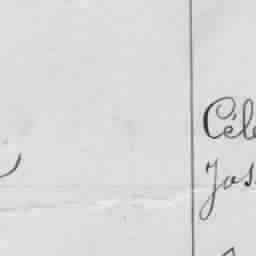 Céle
Jos